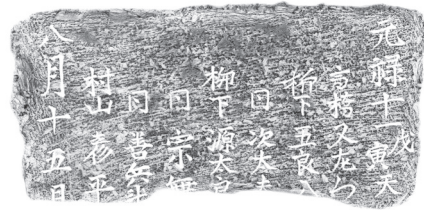 元禄十一戊寅天
高橋又左
柳下五良八
同 次太夫
柳下源太
同 宗
同 喜
村山彦平
八月十五日